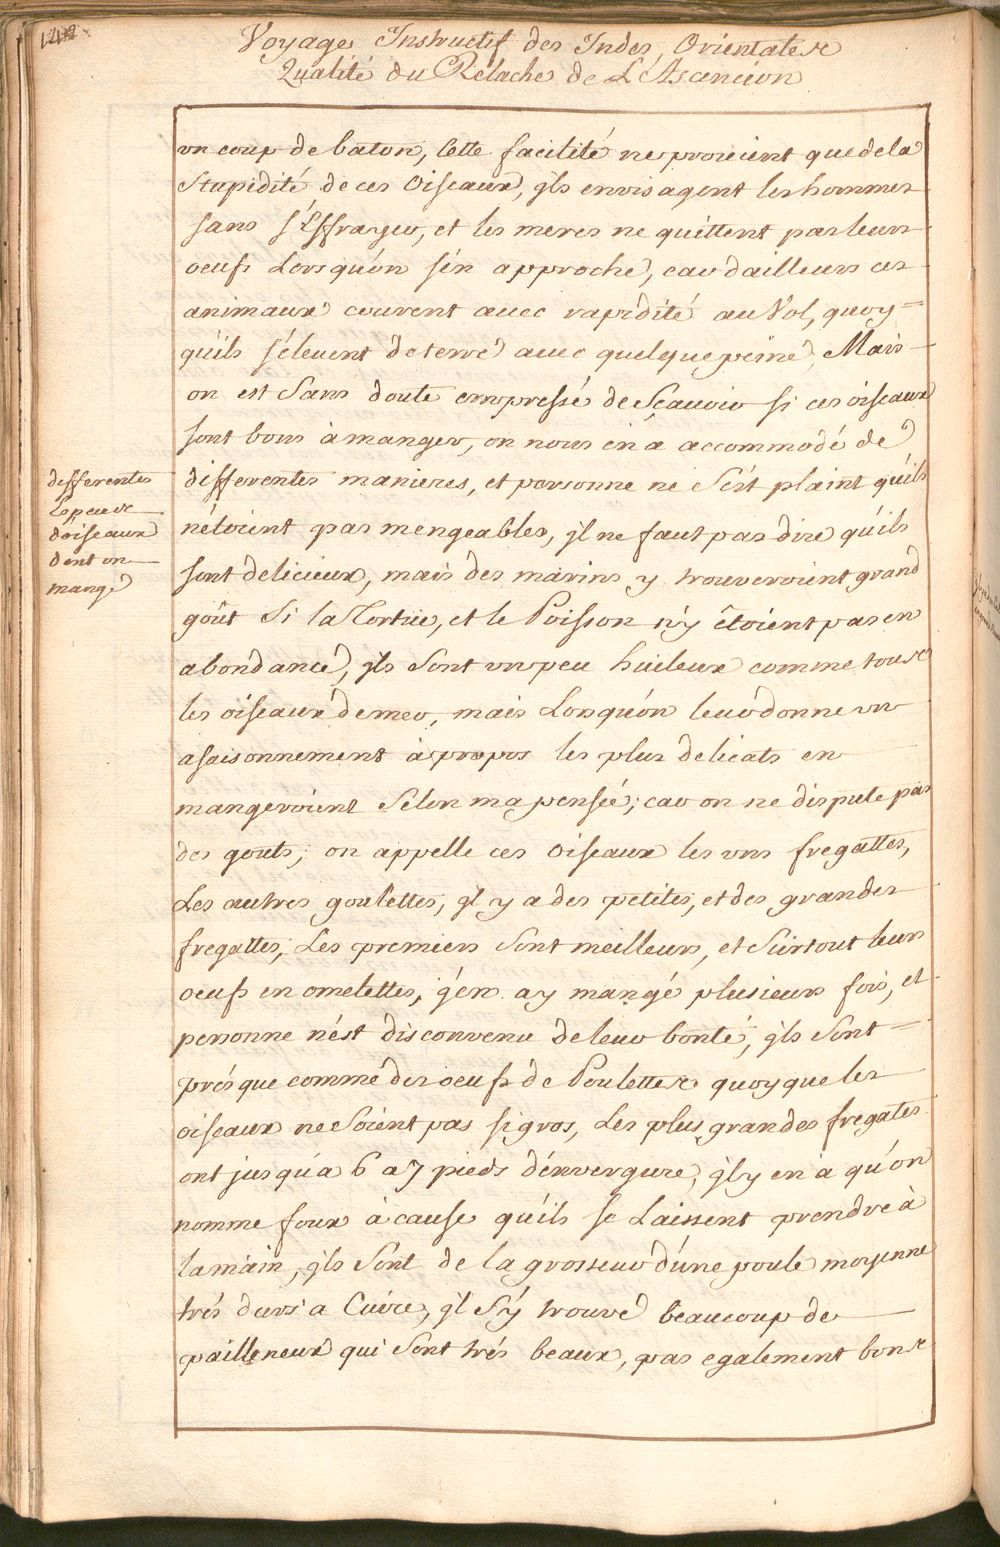 142
Voyage Instructif des Indes Orientales
Qualité du Relache de L'Ascencion
un coup de baton, Cette facilité ne provient que de la
Stupidité de ces Oiseaux, jls envisagent les hommes
sans s'Effrayer, et les meres ne quittent pas leurs
oeufs Lorsqu'on s'en approche, car d'ailleurs ces
animaux courent avec rapidité au Vol, quoy=
qu'ils s'élevent de terre avec quelque peine, Mais
on est Sans doute empressé de Sçavoir si ces oiseaux
sont bons à manger, on nous en a accommodé de
differentes manieres, et personne ne S'est plaint qu'ils
n'étoient pas mengeables, jl ne faut pas dire qu'ils
sont delicieux, mais des marins y trouveroient grand
goût Si la Tortüe, et le Poisson n'y êtoient pas en
abondance, jls Sont un peu huileux comme tous
les oiseaux de mer, mais Lorsqu'on leur donne un
asaisonnement à propos les plus delicats en
mangeroient Selon ma pensée; car on ne dispute pas
des gouts; on appelle ces Oiseaux les uns fregattes,
Les autres goulettes, jl y a des petites, et des grandes
fregattes, Les premiers Sont meilleurs, et Surtout leurs
oeufs en omelettes, j'en ay mangé plusieurs fois, et
personne n'est disconvenu de leur bonté, jls Sont=
presque comme des oeufs de Poulettes quoyque les
oiseaux ne Soient pas si gros, Les plus grandes fregates
ont jusqu'a 6 a 7 pieds d'envergure, jl y en a qu'on
nomme foux à cause qu'ils se Laissent prendre à
la main, jls Sont de la grosseur d'une poule moyenne
trés durs a Cuire, jl S'y trouve beaucoup de
pailleneux qui Sont trés beaux, pas egalement bons
differentes
Especes
d'oiseaux
dont on
mange